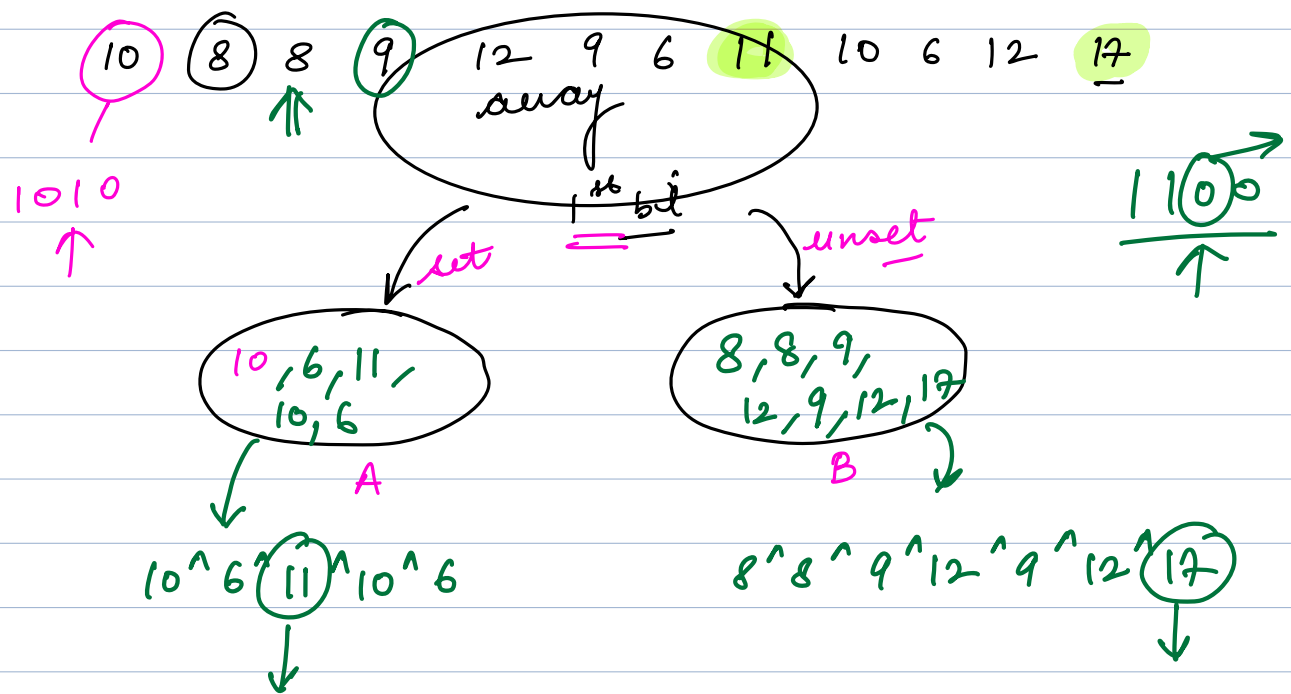 10 8 8 9 12 9 6 11 10 6 12 17
array
1st bit
1010
1100
set
unset
10, 6, 11,
10, 6
A
8, 8, 9,
12, 9, 12, 17
B
10^6^11^10^6
8^8^9^12^9^12^17